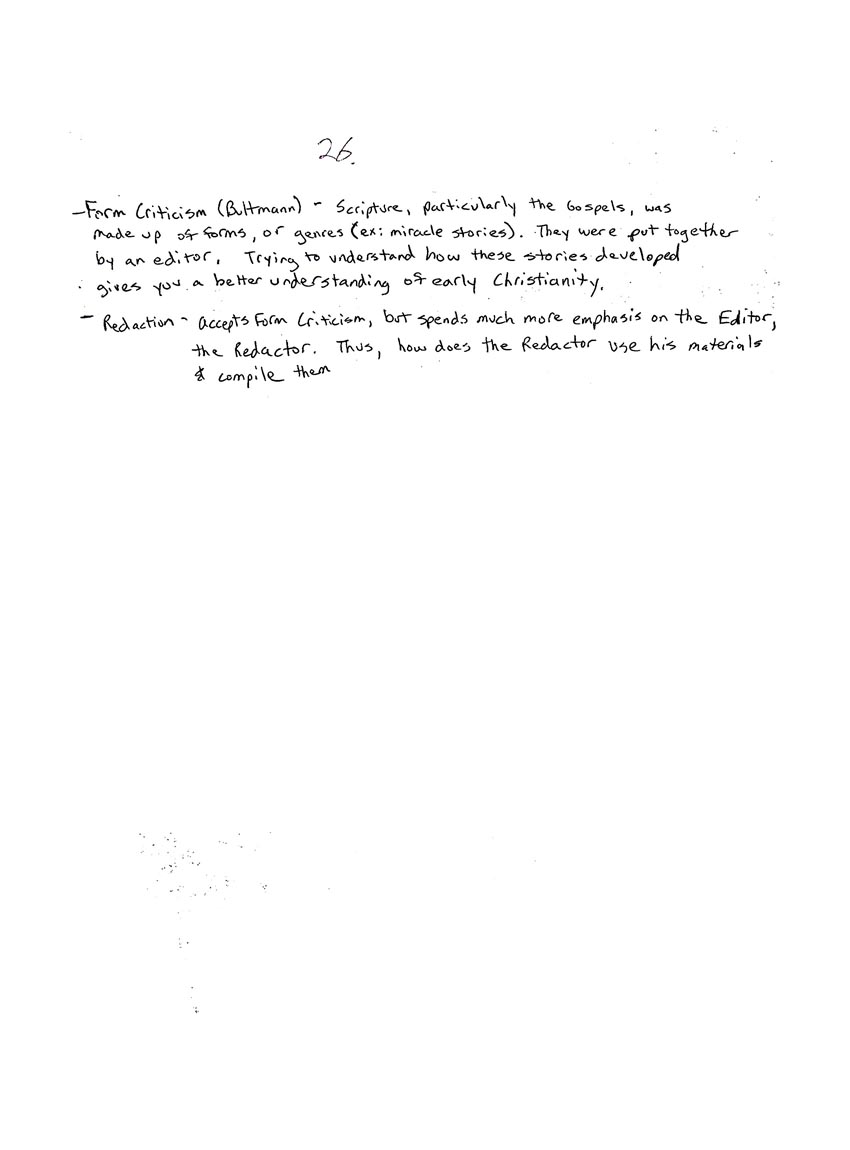 26.
- Form Criticism (Bultmann) - Scripture, particularly the Gospels, was
made up of forms, or genres (ex: miracle stories). They were put together
by an editor. Trying to understand how these stories developed
gives you a better understanding of early Christianity.
- Redaction - accepts Form Criticism, but spends much more emphasis on the Editor,
the Redactor. Thus, how does the Redactor use his materials
& compile them